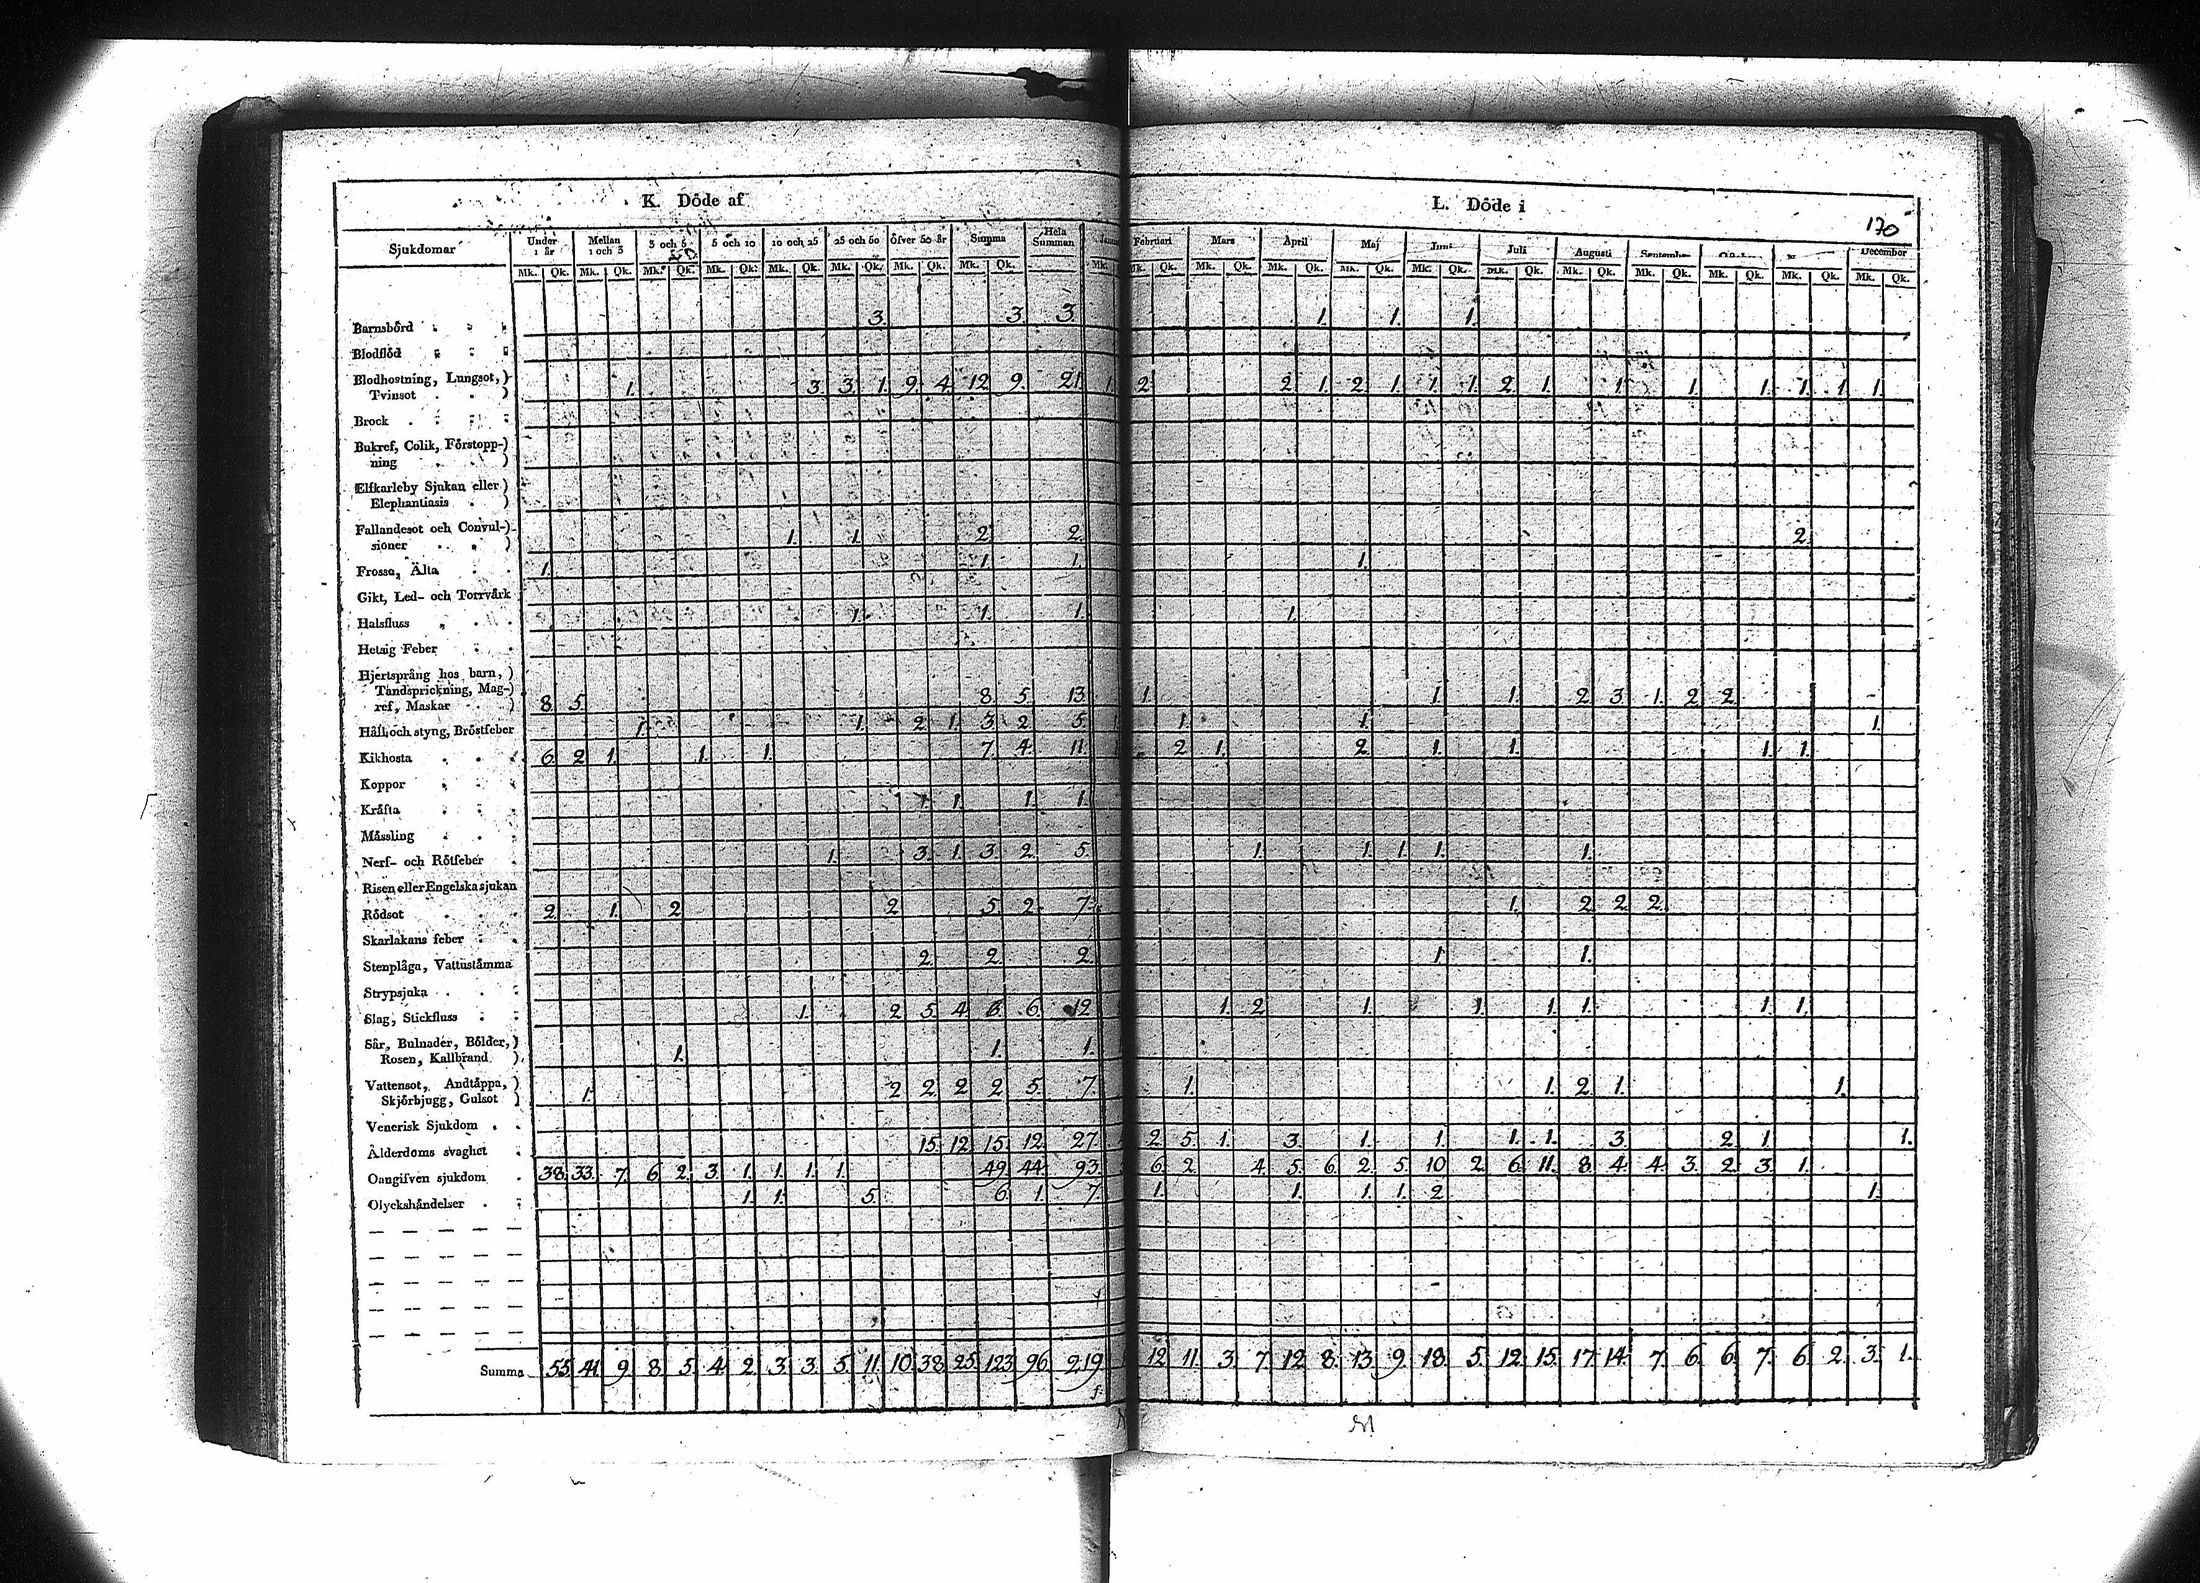 K. Döde af
L. Döde i
170
Sjukdomar Under 1 år Mellan 1 och 3 3 och 5 5 och 10 10 och 25 25 och 50 Öfver 50 år Summa Hela Summan Februari Mars April Maj Juni Juli Augusti December
Mk. Qk. Mk. Qk. Mk. Qk. Mk. Qk. Mk. Qk. Mk. Qk. Mk. Qk. Mk. Qk. Mk. Qk. Mk. Qk. Mk. Qk. Mk. Qk. Mk. Qk. Mk. Qk. Mk. Qk. Mk. Qk. Mk. Qk. Mk. Qk. Mk. Qk.
Barnsbörd 3. 3. 3. 1. 1. 1.
Blodflöd
Blodhostning, Lungsot,) Tvinsot 1. 3. 3. 1. 9. 4. 12. 9. 21. 1. 2. 2. 1. 2. 1. 1. 1. 2. 1. 1. 1. 1. 1. 1. 1.
Brock
Bukref, Colik, Förstopp-)
ning
Elfkarleby Sjukan eller)
Elephantiasis
Fallandesot och Convul-)
sioner 1. 1. 2. 2. 2.
Frossa, Älta 1. 1. 1. 1.
Gikt, Led- och Torrvärk
Halsfluss 1. 1. 1. 1.
Hetsig Feber
Hjertsprång hos barn,)
Tandsprickning, Mag-)
ref, Maskar 8. 5. 8. 5. 13. 1. 1. 1. 2. 3. 1. 2. 2.
Håll och styng, Bröstfeber 1. 1. 2. 1. 3. 2. 5. 1. 1. 1. 1.
Kikhosta 6. 2. 1. 1. 1. 7. 4. 11. 2. 1. 2. 1. 1. 1. 1.
Koppor
Kräfta 1. 1. 1.
Mässling
Nerf- och Rötfeber 1. 3. 1. 3. 2. 5. 1. 1. 1. 1. 1.
Risen eller Engelska sjukan
Rödsot 2. 1. 2. 2. 5. 2. 7. 1. 2. 2. 2.
Skarlakans feber
Stenplåga, Vattustämma 2. 2. 2. 1. 1.
Strypsjuka
Slag, Stickfluss 1. 2. 5. 4. 6. 6. 12. 1. 2. 1. 1. 1. 1. 1. 1.
Sår, Bulnader, Bölder,)
Rosen, Kallbrand 1. 1. 1.
Vattensot, Andtäppa,)
Skjörbjugg, Gulsot 1. 2. 2. 2. 2. 5. 7. 1. 1. 2. 1. 1.
Venerisk Sjukdom
Ålderdoms svaghet 15. 12. 15. 12. 27. 2. 5. 1. 3. 1. 1. 1. 1. 3. 2. 1. 1.
Oangifven sjukdom 38. 33. 7. 6. 2. 3. 1. 1. 1. 1. 49. 44. 93. 6. 2. 4. 5. 6. 2. 5. 10. 2. 6. 11. 8. 4. 4. 3. 2. 3. 1.
Olyckshändelser 1. 1. 5. 6. 1. 7. 1. 1. 1. 1. 2. 1.
Summa 55. 41. 9. 8. 5. 4. 2. 3. 3. 5. 11. 10. 38. 25. 123. 96. 219. 12. 11. 3. 7. 12. 8. 13. 9. 18. 5. 12. 15. 17. 14. 7. 6. 6. 7. 6. 2. 3. 1.